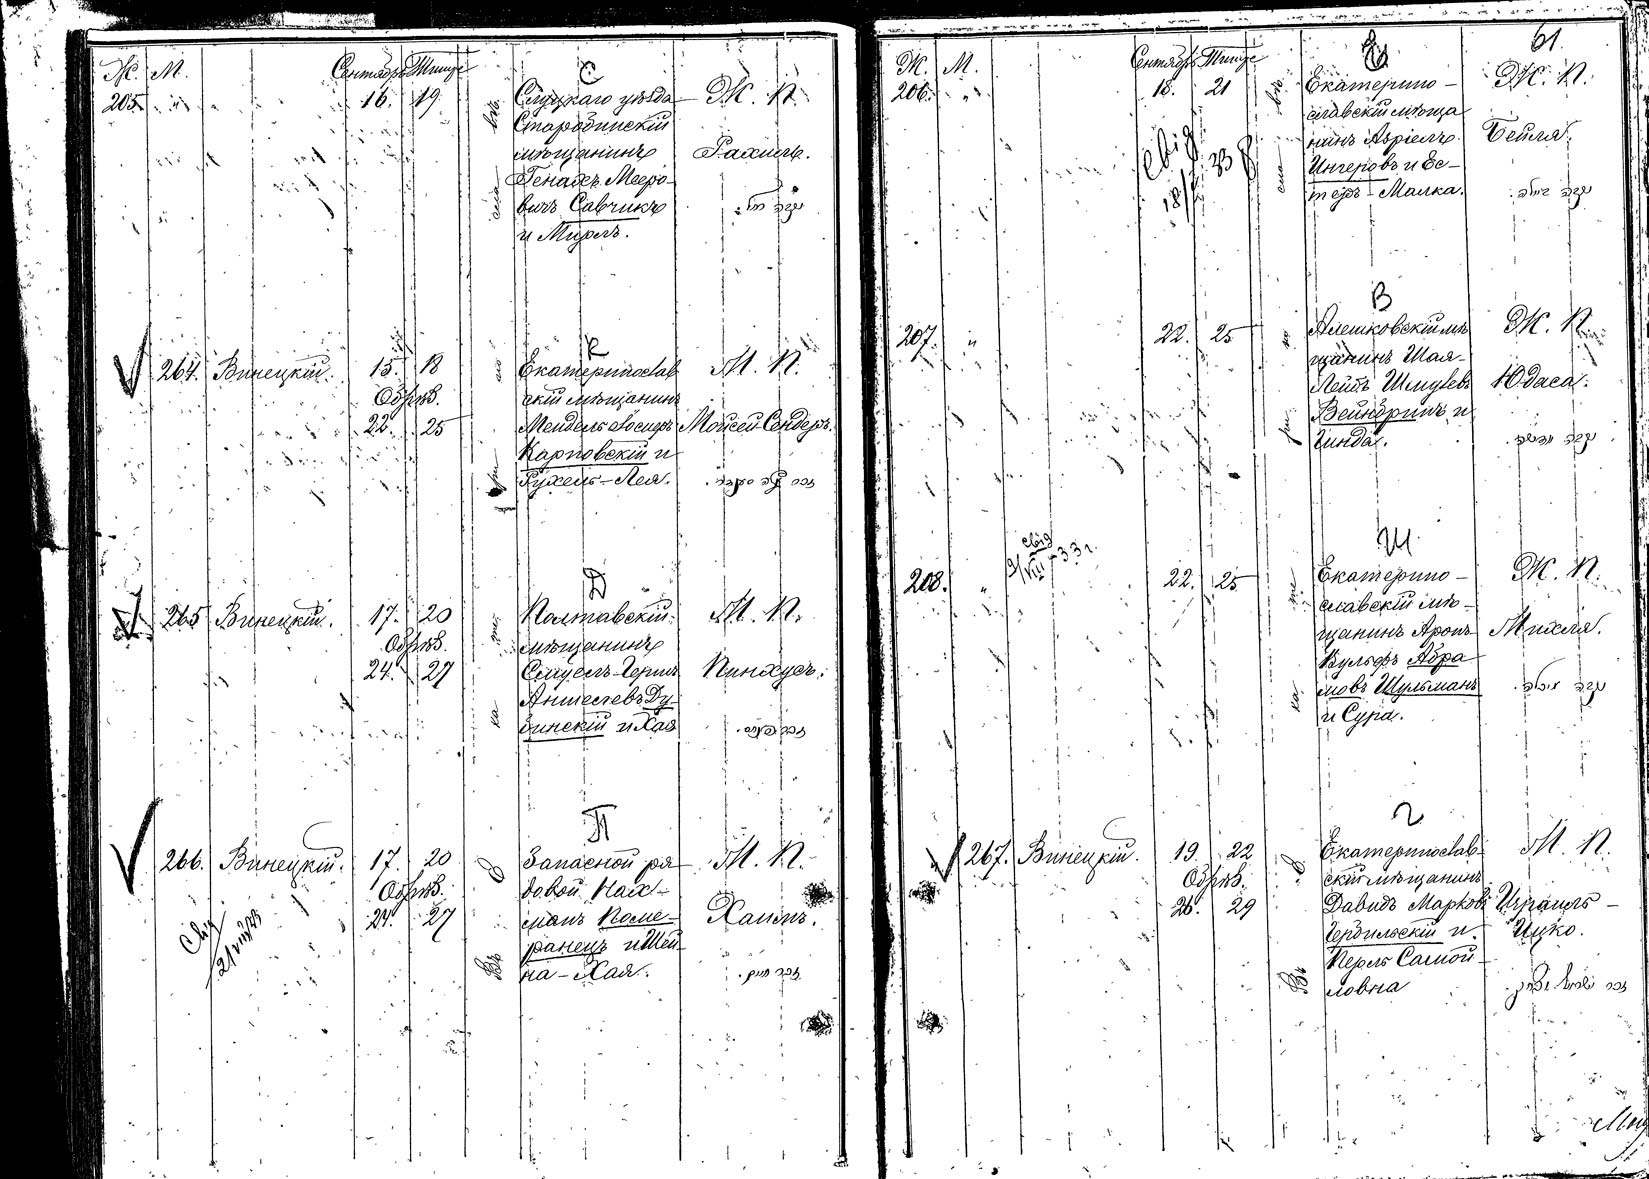 Ж. М. Сентябрь Тишре
С
205. " 16. 19
Слуцкаго уѣзда
Старобинскій
мѣщанинъ
Генахъ Мееро-
вичъ Савчикъ
и Мирль.
Ж. П.
Рахиль.
К
264. Винецкій. 15. 18
Обрѣз.
22. 25
Екатеринослав
скій мѣщанинъ
Мендель Іосифъ
Карповскій и
Рухель-Лея.
М. П.
Мойсей-Сендеръ.
Д
265 Винецкій. 17. 20
Обрѣз.
24. 27
Полтавскій
мѣщанинъ
Смуелъ-Гершъ
Аншелевъ Ду-
бинскій и Хая
М. П.
Пинхусъ.
П
266. Винецкій. 17. 20
Обрѣз.
24. 27
Запасной ря-
довой Нах-
манъ Поме-
ранецъ и Шей
на-Хая.
М. П.
Хаимъ.
זכר חיים.
61.
Ж. М. Сентябрь Тишре
206. " 18. 21
Екатерино-
славскій мѣща
нинъ Азріелъ
Ингеровъ и Ес-
теръ-Малка.
Ж. П.
Бейля.
נקבה ביילה.
свід
В
207. " 22. 25
Алешковскій мѣ
щанинъ Шая-
Лейбъ Шмулевъ
Вейнбринъ и
Гинда.
Ж. П.
Юдаса.
свід
2/VIII-33 г.
Ш
208. " 22. 25
Екатерино-
славскій мѣ-
щанинъ Аронъ
Вульфъ Абра
мовъ Шульманъ
и Сура.
Ж. П.
Михля.
נקבה מיכלה.
Г
267. Винецкій. 19. 22
Обрѣз.
26. 29
Екатеринослав-
скій мѣщанинъ
Давидъ Марковъ
Гербильскій и
Перль Самой-
ловна
М. П.
Израиль-
Ицко.
זכר ישראל יצחק.